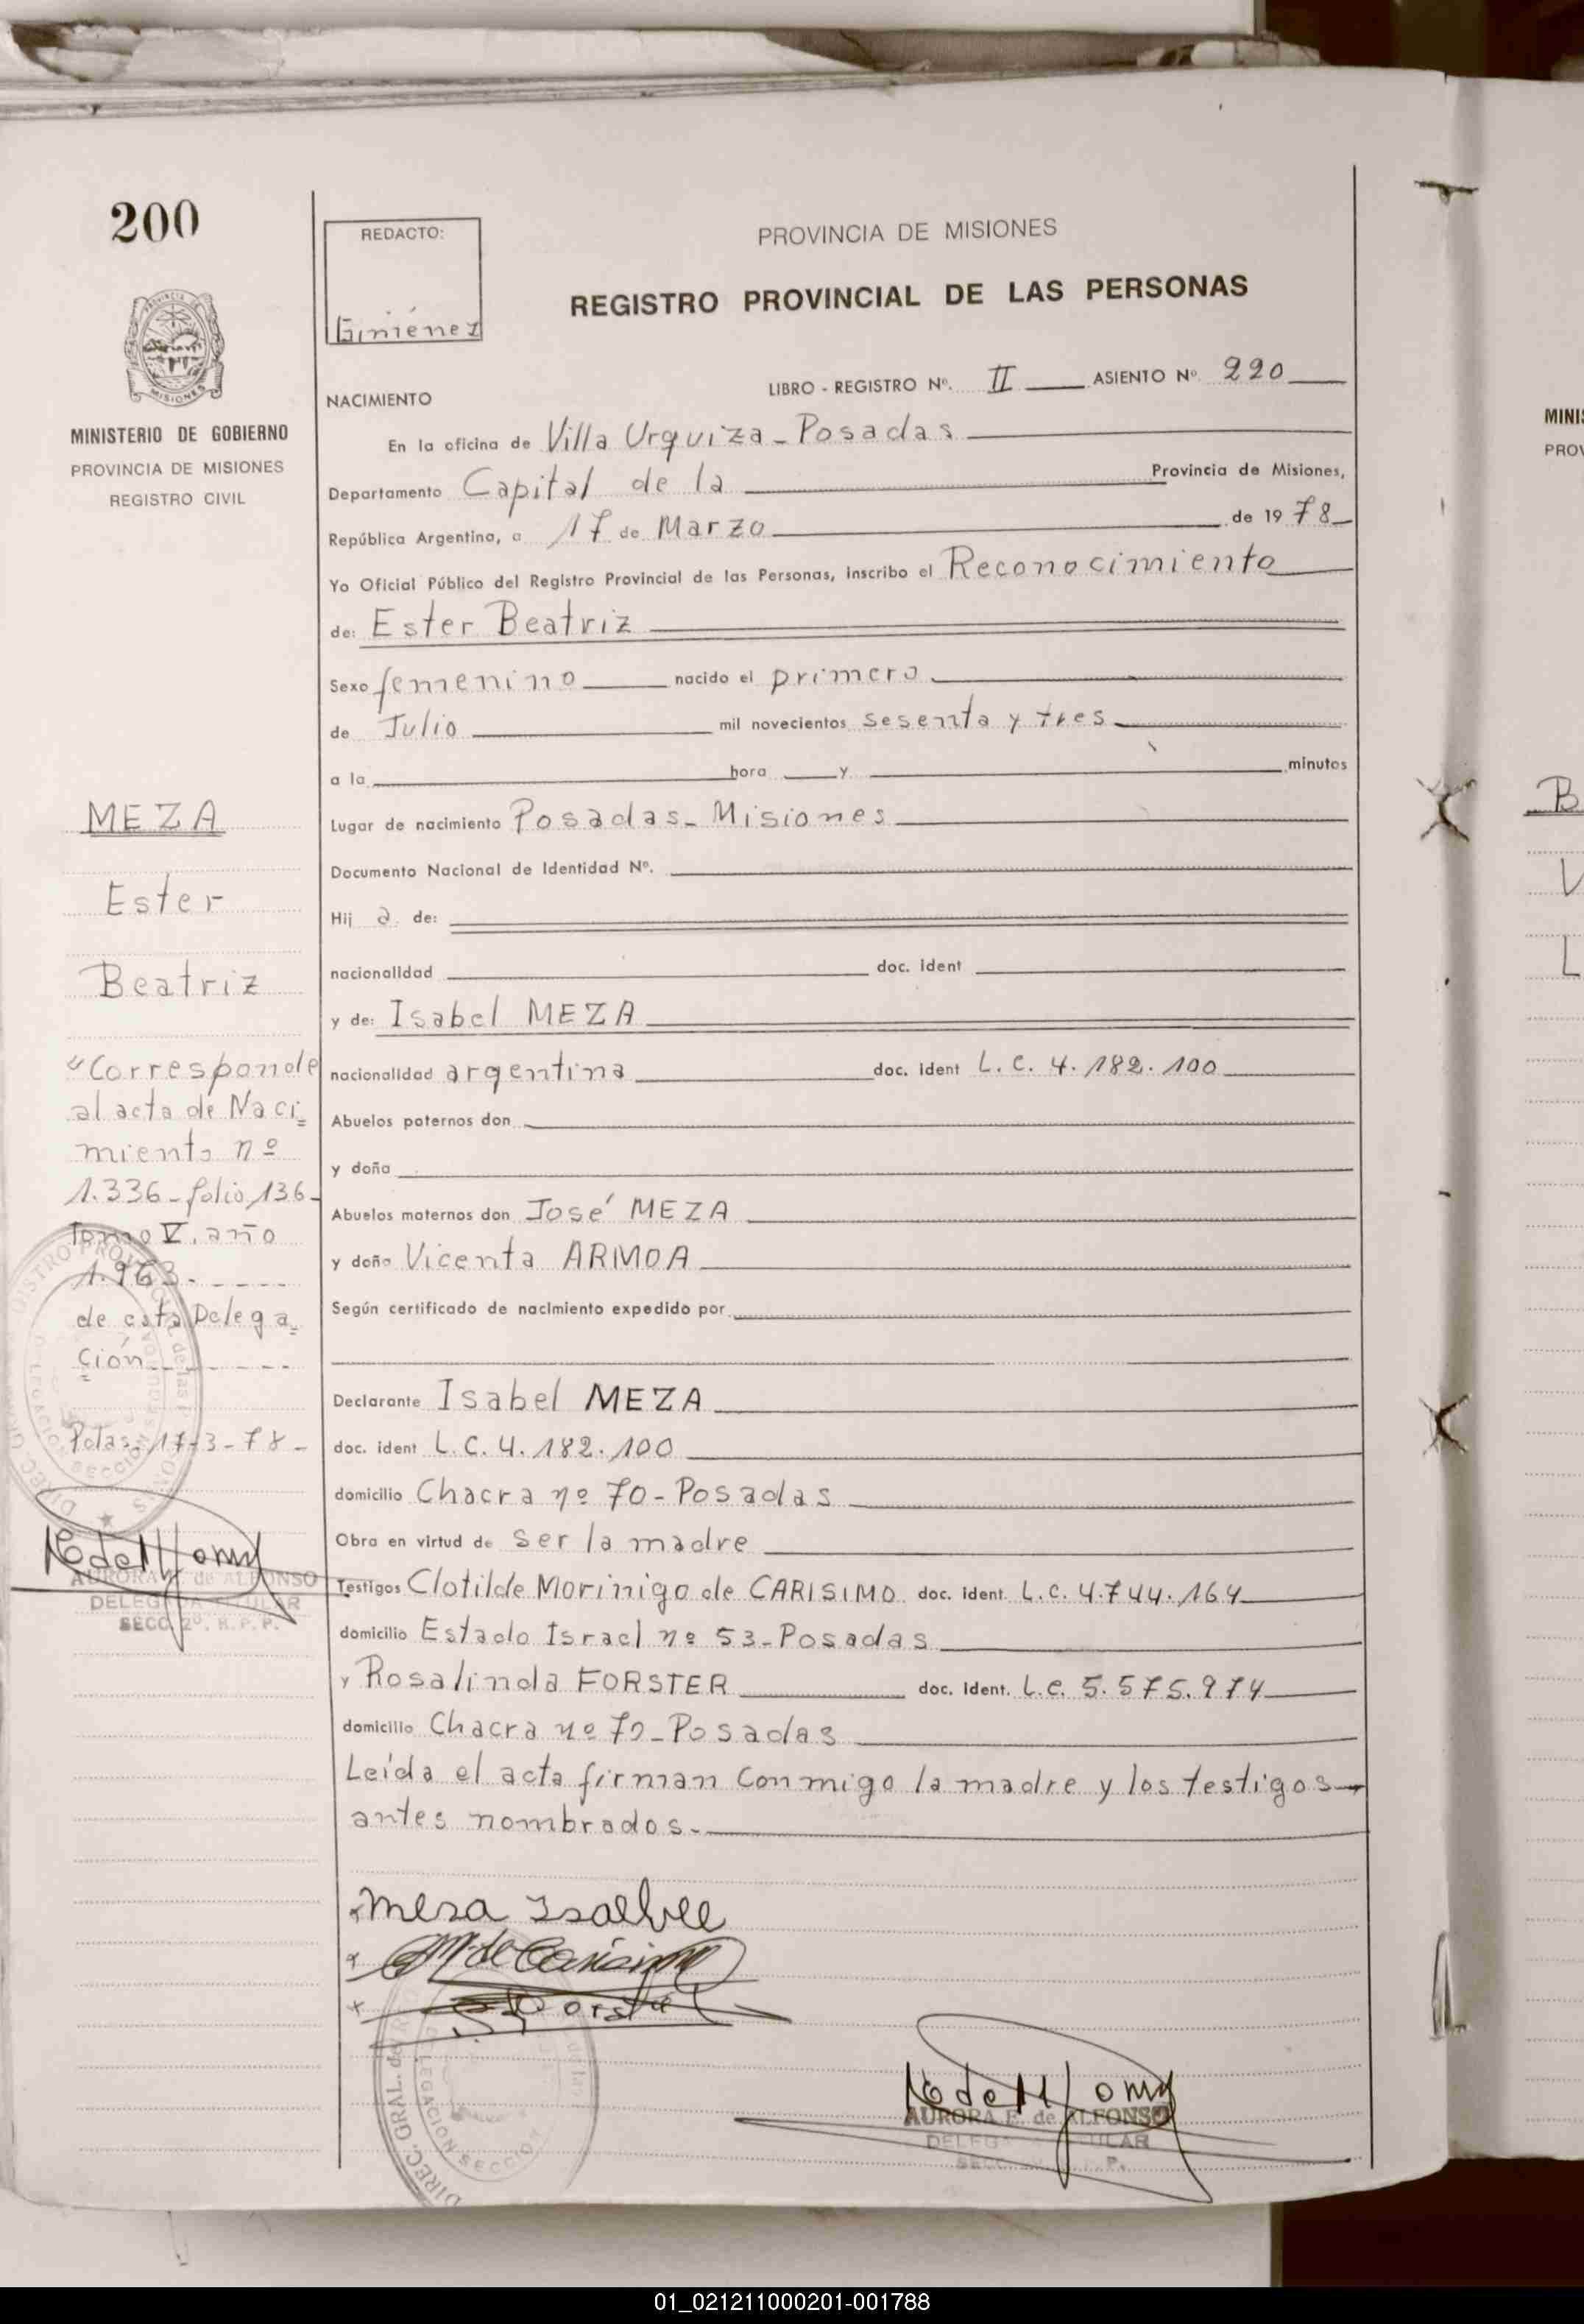 200
PROVINCIA DE MISIONES
MINISTERIO DE GOBIERNO
PROVINCIA DE MISIONES
REGISTRO CIVIL
MEZA
Ester
Beatriz
"Corresponde
al acta de Naci=
miento nº
1.336 - folio 136-
Tomo V. año
1.963.-----
de esta Delega=
ción-----
Pdas. 17-3-78-
AURORA E. de ALFONSO
DELEGADA TITULAR
SECC 2º. R.P.P.
REDACTO:
Giménez
PROVINCIA DE MISIONES
REGISTRO PROVINCIAL DE LAS PERSONAS
LIBRO - REGISTRO Nº. II ASIENTO Nº 220
NACIMIENTO
En la oficina de Villa Urquiza - Posadas
Departamento Capital de la Provincia de Misiones,
República Argentina, a 17 de Marzo de 1978
Yo Oficial Público del Registro Provincial de las Personas, inscribo el Reconocimiento
de: Ester Beatriz
Sexo femenino nacido el primero
de Julio mil novecientos sesenta y tres
a la hora y minutos
Lugar de nacimiento Posadas - Misiones
Documento Nacional de Identidad Nº.
Hij a de:
nacionalidad doc. ident
y de: Isabel MEZA
nacionalidad argentina doc. ident L.C. 4.182.100
Abuelos paternos don
y doña
Abuelos maternos don José MEZA
y doña Vicenta ARMOA
Según certificado de nacimiento expedido por
Declarante Isabel MEZA
doc. ident L.C. 4.182.100
domicilio Chacra nº 70 - Posadas
Obra en virtud de ser la madre
Testigos Clotilde Morinigo de CARISIMO doc. ident. L.C. 4.744.164
domicilio Estado Israel nº 53 - Posadas
y Rosalinda FORSTER doc. Ident. L.C. 5.575.974
domicilio Chacra nº 70 - Posadas
Leída el acta firman conmigo la madre y los testigos
antes nombrados.-
Meza Isabel
M. de Carisimo
Forster
DIREC. GRAL. del
DELEGACION SECCION
AURORA E. de ALFONSO
DELEGADA TITULAR
MINIS
PROV
B
V
L
01_021211000201-001788